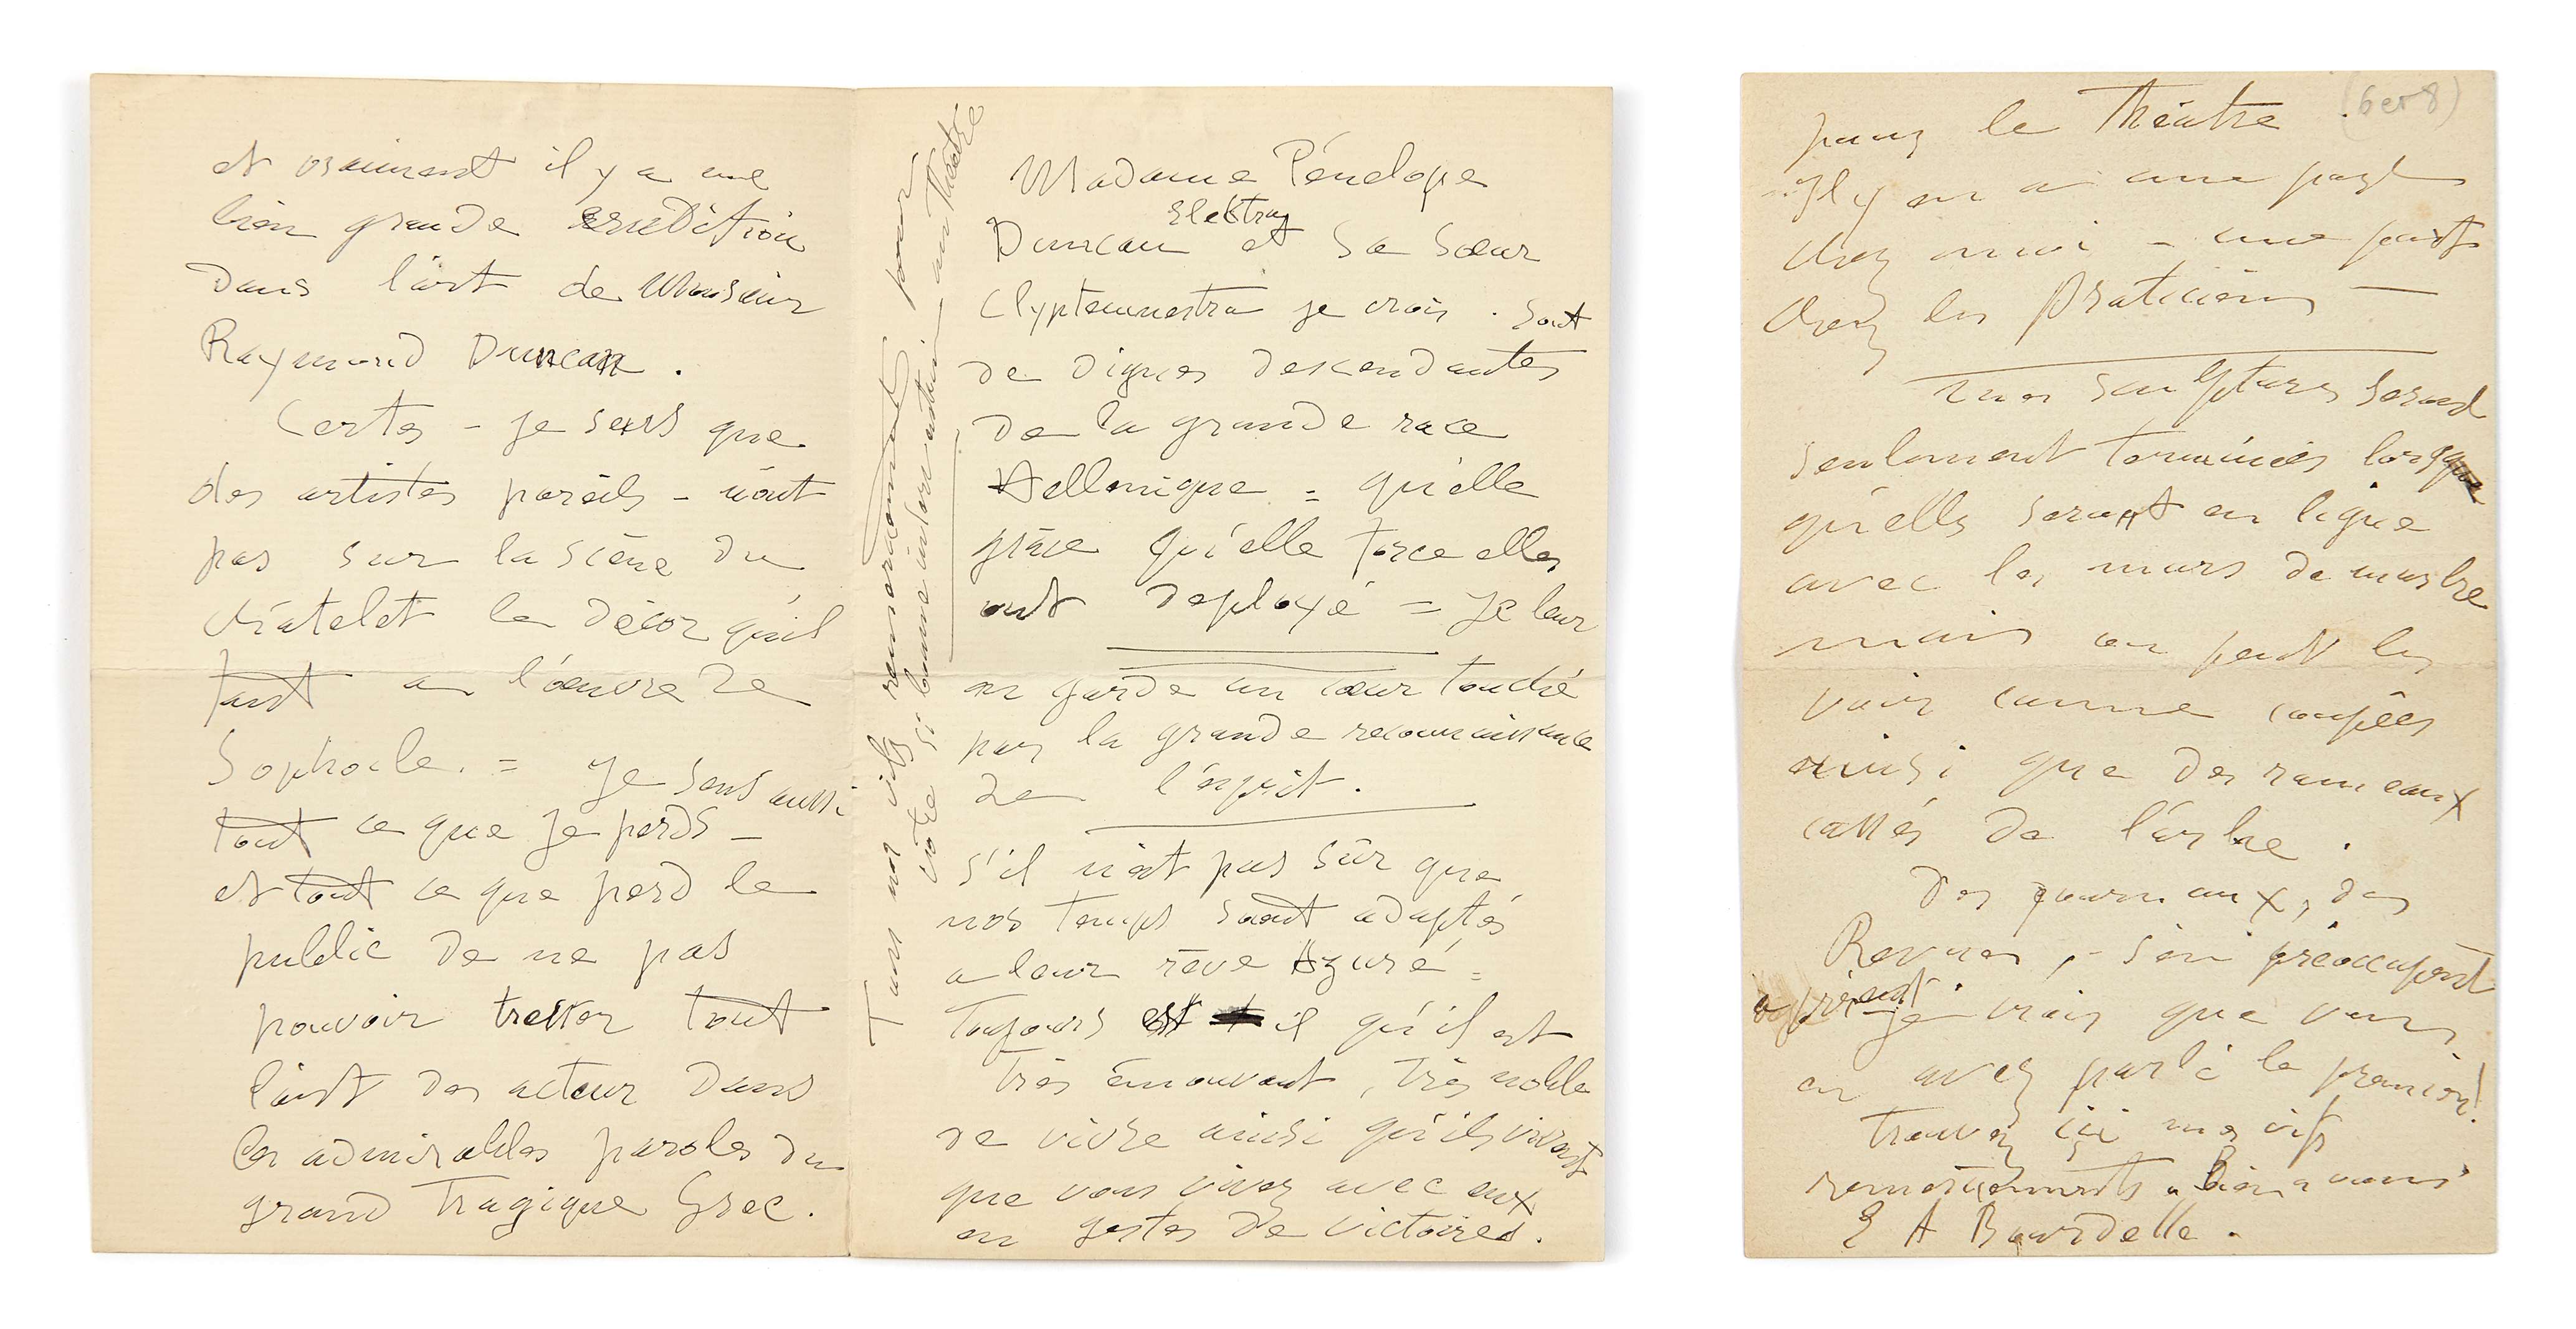 et vraiment il y a une
bien grande erudition
dans l'art de Monsieur
Raymond Duncan.
Certes - je sens que
des artistes pareils - n'ont
pas sur la scène du
châtelet le décor qu'il
faut a l'oeuvre de
Sophocle. = je sens aussi
tout ce que je perds -
et tout ce que perd le
public de ne pas
pouvoir tout
l'art des acteur dans
les admirables paroles du
grand Tragique Grec.
Tous mes vifs remerciements pour
votre si bonne intervention au Théatre
Madame Pénélope
Elektra
Duncan et sa soeur
Clyptemnestra je crois. sont
de dignes descendantes
de la grande race
Hellenique = qu'elle
grâce qu'elle force elles
ont deployé = je leur
en garde un coeur touché
par la grande reconnaissance
de l'esprit.
s'il n'est pas sûr que
nos temps soient adaptés
a leur rêve Azuré =
Toujours est il qu'il est
très émouvant, très noble
de vivre ainsi qu'ils vivent
que vous vivez avec eux
en gestes de victoires.
(6 et 8)
pour le Théâtre.
Il y en a une part
chez moi - une part
chez les praticiens -
mes sculptures seront
seulement terminées lorsque
qu'elles seront en ligne
avec les murs de marbre
mais on peut les
voir comme coupées
ainsi que des rameaux
cassés de l'arbre.
Des journaux, des
Revues, - s'en préoccupent
a présent. je crois que vous
en avez parlé le premier!
trouvez ici mes vifs
remerciements. Bien a vous
E A Bourdelle.